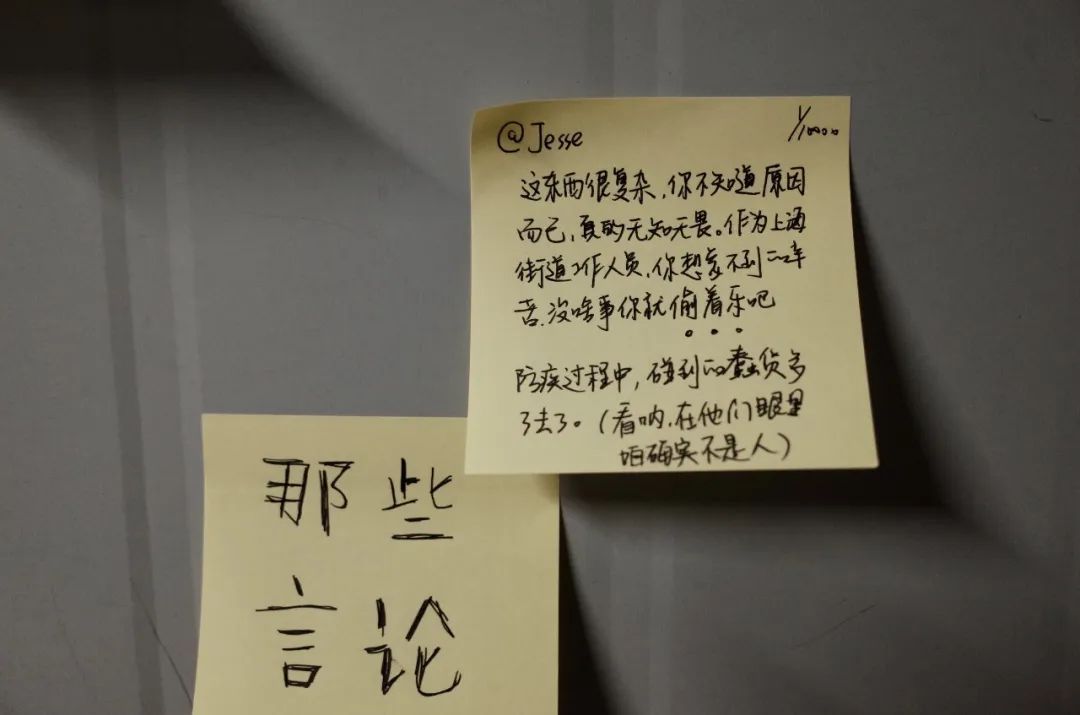 @Jesse
1/10000
这东西很复杂，你不知道原因
而已，真的无知无畏。作为上海
街道工作人员，你想象不到的辛
苦，没啥事你就偷着乐吧
。。。
防疾过程中，碰到的蠢货多
了去了。（看呐，在他们眼里
咱确实不是人）
那些
言论